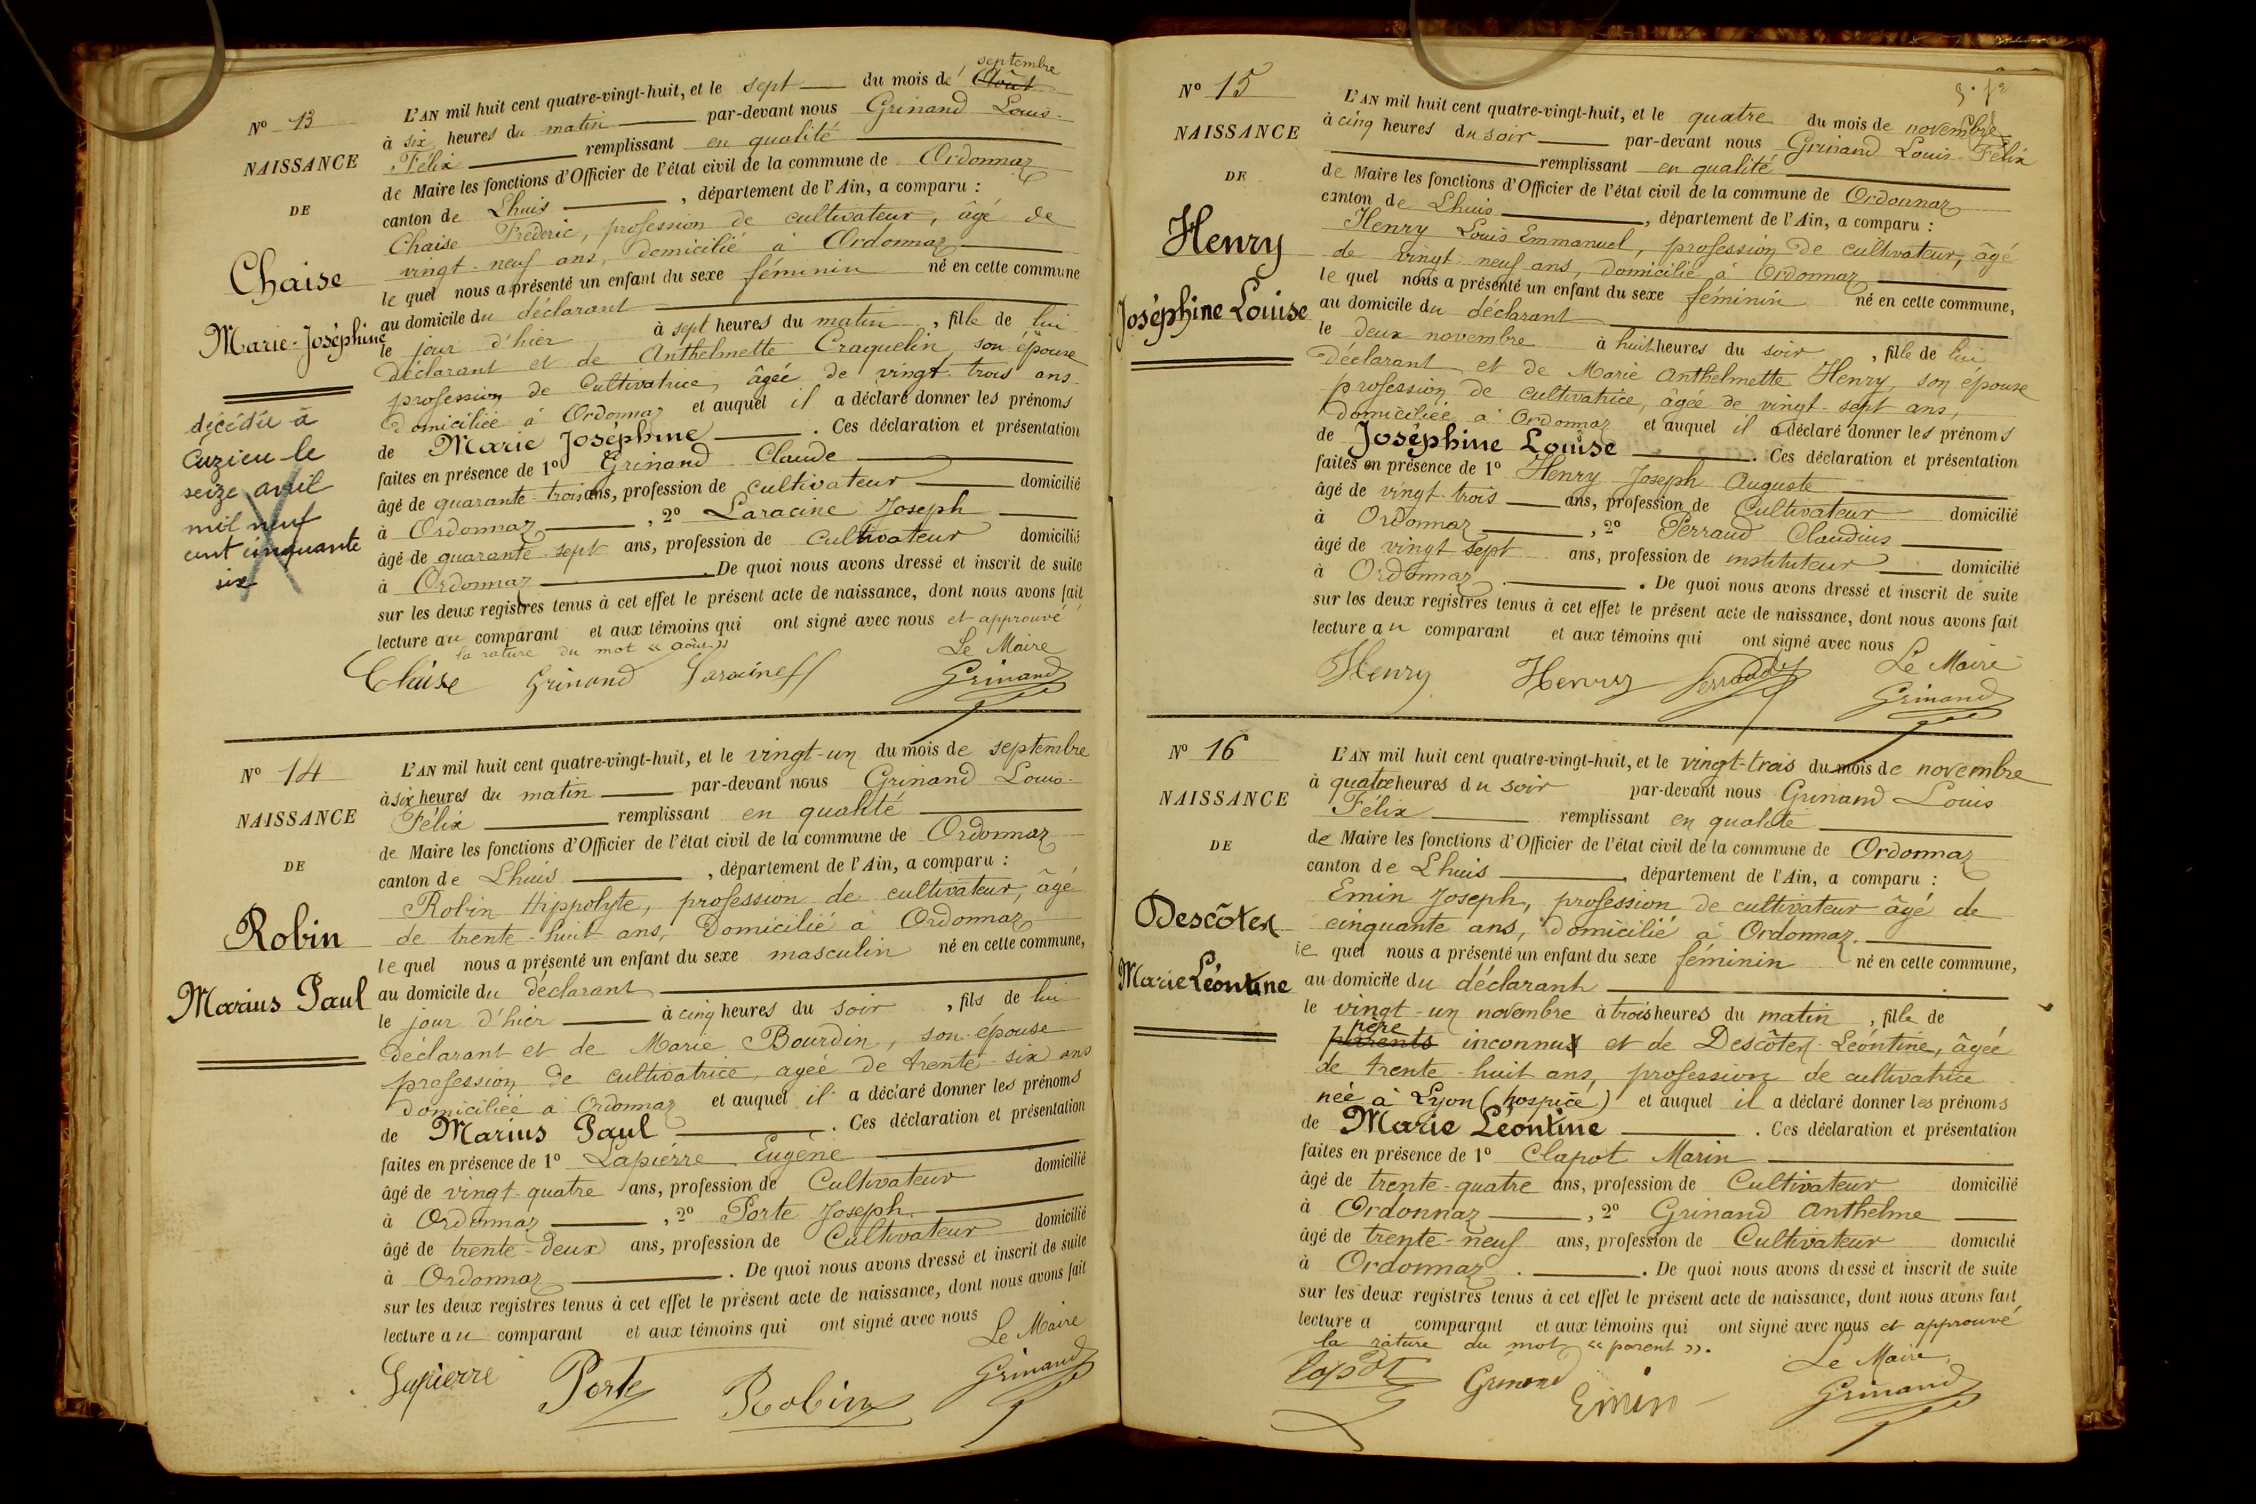 septembre
N° 13
L'AN mil huit cent quatre-vingt-huit, et le sept du mois de Août
à six heures du matin par-devant nous Grinand Louis-
Félix remplissant en qualité
de Maire les fonctions d'Officier de l'état civil de la commune de Ordonnaz
canton de Lhuis, département de l'Ain, a comparu :
Chaise Frédéric, profession de cultivateur, âgé de
vingt-neuf ans, domicilié à Ordonnaz
le quel nous a présenté un enfant du sexe féminin né en cette commune
au domicile du déclarant
le jour d'hier à sept heures du matin, fille de lui
déclarant et de Anthelmette Craquelin, son épouse
profession de Cultivatrice, âgée de vingt-trois ans
domiciliée à Ordonnaz et auquel il a déclaré donner les prénoms
de Marie Joséphine. Ces déclaration et présentation
faites en présence de 1° Grinand Claude
âgé de quarante-trois ans, profession de cultivateur domicilié
à Ordonnaz, 2° Laracine Joseph
âgé de quarante-sept ans, profession de Cultivateur domicilié
à Ordonnaz. De quoi nous avons dressé et inscrit de suite
sur les deux registres tenus à cet effet le présent acte de naissance, dont nous avons fait
lecture au comparant et aux témoins qui ont signé avec nous et approuvé
la rature du mot « août »
Le Maire
Chaise Grinand Laracine Grinand
NAISSANCE
DE
Chaise
Marie-Joséphine
décédée à
Cuzieu le
seize avril
mil neuf
cent cinquante
six
N° 14
NAISSANCE
DE
Robin
Marius Paul
L'AN mil huit cent quatre-vingt-huit, et le vingt-un du mois de septembre
à six heures du matin par-devant nous Grinand Louis-
Félix remplissant en qualité
de Maire les fonctions d'Officier de l'état civil de la commune de Ordonnaz
canton de Lhuis, département de l'Ain, a comparu :
Robin Hippolyte, profession de cultivateur, âgé
de trente-huit ans, domicilié à Ordonnaz
le quel nous a présenté un enfant du sexe masculin né en cette commune,
au domicile du déclarant
le jour d'hier à cinq heures du soir, fils de lui
déclarant et de Marie Bourdin, son épouse
profession de cultivatrice, agée de trente-six ans
domiciliée à Ordonnaz et auquel il a déclaré donner les prénoms
de Marius Paul. Ces déclaration et présentation
faites en présence de 1° Lapierre Eugène
âgé de vingt-quatre ans, profession de Cultivateur domicilié
à Ordonnaz, 2° Porte Joseph
âgé de trente-deux ans, profession de Cultivateur domicilié
à Ordonnaz. De quoi nous avons dressé et inscrit de suite
sur les deux registres tenus à cet effet le présent acte de naissance, dont nous avons fait
lecture au comparant et aux témoins qui ont signé avec nous
Le Maire
Lapierre Porte Robin Grinand
N° 15
NAISSANCE
DE
Henry
Joséphine Louise
L'AN mil huit cent quatre-vingt-huit, et le quatre du mois de novembre
à cinq heures du soir par-devant nous Grinand Louis-Félix
remplissant en qualité
de Maire les fonctions d'Officier de l'état civil de la commune de Ordonnaz
canton de Lhuis, département de l'Ain, a comparu :
Henry Louis Emmanuel, profession de cultivateur, âgé
de vingt-neuf ans, domicilié à Ordonnaz
le quel nous a présenté un enfant du sexe féminin né en cette commune,
au domicile du déclarant
le deux novembre à huit heures du soir, fille de lui
déclarant et de Marie Anthelmette Henry, son épouse
profession de cultivatrice, âgée de vingt-sept ans,
domiciliée à Ordonnaz et auquel il a déclaré donner les prénoms
de Joséphine Louise. Ces déclaration et présentation
faites en présence de 1° Henry Joseph Auguste
âgé de vingt-trois ans, profession de Cultivateur domicilié
à Ordonnaz, 2° Perraud Claudius
âgé de vingt sept ans, profession de instituteur domicilié
à Ordonnaz. De quoi nous avons dressé et inscrit de suite
sur les deux registres tenus à cet effet le présent acte de naissance, dont nous avons fait
lecture au comparant et aux témoins qui ont signé avec nous
Le Maire
Henry Henry Perraud Grinand
N° 16
NAISSANCE
DE
Descôtes
Marie Léontine
L'AN mil huit cent quatre-vingt-huit, et le vingt-trois du mois de novembre
à quatre heures du soir par-devant nous Grinand Louis
Félix remplissant en qualité
de Maire les fonctions d'Officier de l'état civil de la commune de Ordonnaz
canton de Lhuis, département de l'Ain, a comparu :
Emin Joseph, profession de cultivateur âgé de
cinquante ans, domicilié à Ordonnaz.
le quel nous a présenté un enfant du sexe féminin né en cette commune,
au domicile du déclarant
le vingt-un novembre à trois heures du matin, fille de
père
parents inconnus et de Descôtes Léontine, âgée
de trente-huit ans, profession de cultivatrice
née à Lyon (hospice) et auquel il a déclaré donner les prénoms
de Marie Léontine. Ces déclaration et présentation
faites en présence de 1° Clapot Marin
âgé de trente-quatre ans, profession de Cultivateur domicilié
à Ordonnaz, 2° Grinand Anthelme
âgé de trente-neuf ans, profession de Cultivateur domicilié
à Ordonnaz. De quoi nous avons dressé et inscrit de suite
sur les deux registres tenus à cet effet le présent acte de naissance, dont nous avons fait
lecture a comparant et aux témoins qui ont signé avec nous et approuvé
la rature du mot « parent ».
Le Maire
Clapot Grinand Emin Grinand